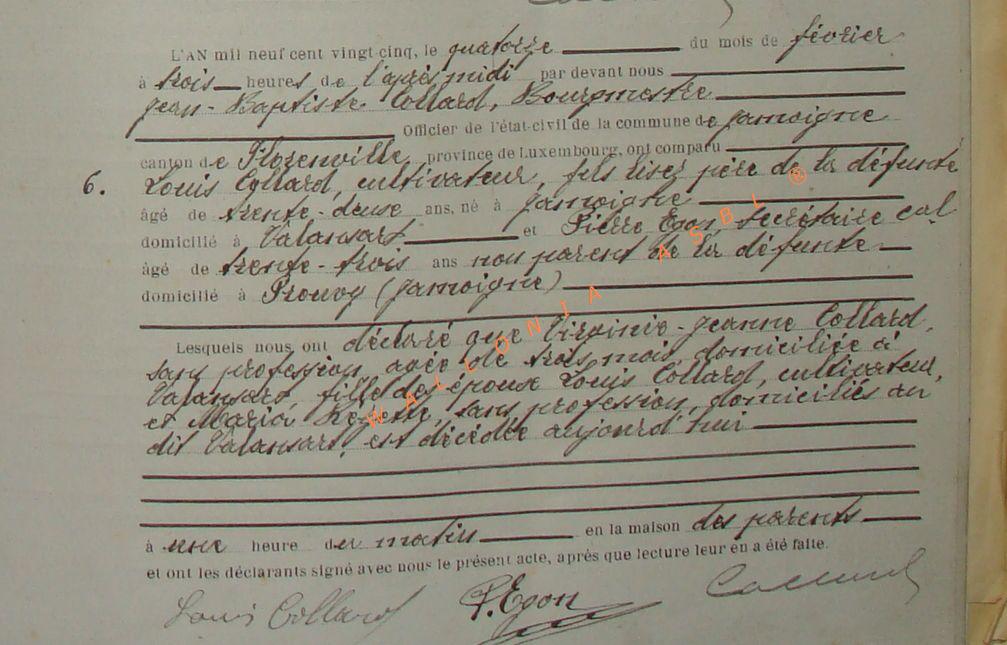 L'AN mil neuf cent vingt-cinq, le quatorze du mois de février
à trois heures de l'après midi par devant nous
Jean-Baptiste Collard, Bourgmestre
Officier de l'état-civil de la commune de Jamoigne
canton de Florenville, province de Luxembourg, ont comparu
6. Louis Collard, cultivateur, fils lisez père de la défunte
âgé de trente-deux ans, né à Jamoigne
domicilié à Valansart et Pierre Egon, secrétaire cal
âgé de trente-trois ans non parent de la défunte
domicilié à Prouvy (Jamoigne)
Lesquels nous ont déclaré que Virginie-Jeanne Collard,
sans profession, agée de trois mois, domiciliée à
Valansart, fille des époux Louis Collard, cultivateur,
et Maria, sans profession, domiciliés au
dit Valansart, est décédée aujourd'hui
à une heure du matin en la maison des parents
et ont les déclarants signé avec nous le présent acte, après que lecture leur en a été faite.
Louis Collard P. Egon Collard
WALLONIA ASBL ®